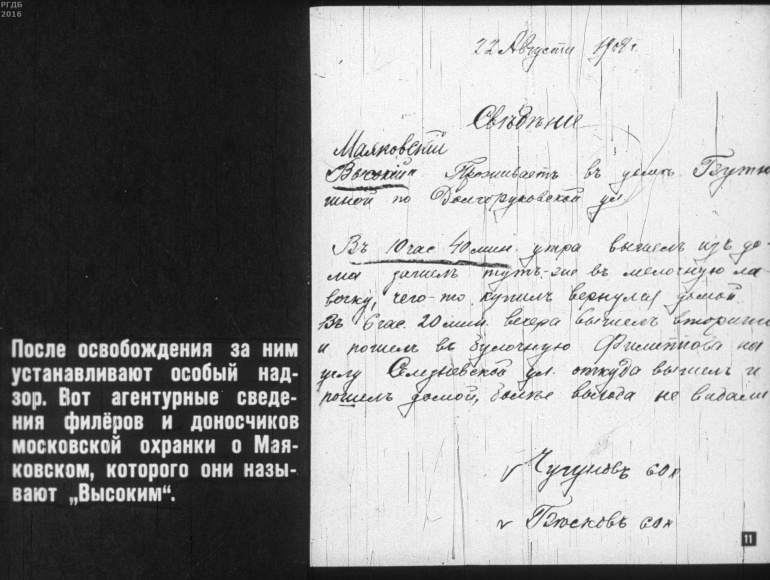 РГДБ
2016
После освобождения за ним
устанавливают особый над-
зор. Вот агентурные сведе-
ния филёров и доносчиков
московской охранки о Мая-
ковском, которого они назы-
вают „Высоким“.
22 Августа 1908 г.
Свѣдѣніе
Маяковскій
„Высокій“ Проживаетъ въ домѣ
шной по Долгоруковской ул
Въ 10 час 40 мин. утра вышелъ изъ до-
ма зашелъ тутъ-же въ мелочную ла-
вочку, чего-то купилъ вернулся домой
Въ 6 час. 20 мин вечера вышелъ вторично
и пошелъ въ булочную Филиппова на
углу Селезневской ул. откуда вышелъ и
пошелъ домой, болѣе выхода не видали
Чугуновъ
11